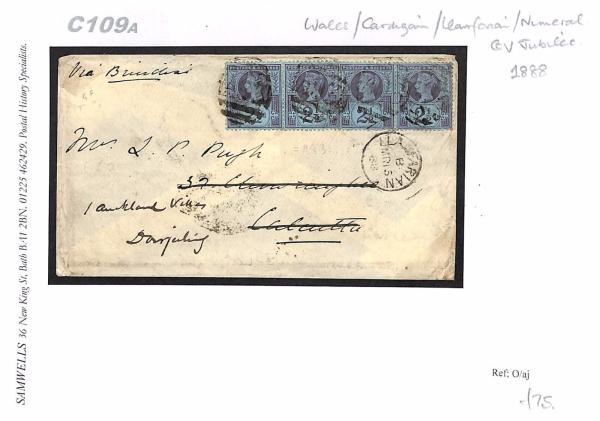 C109A
Wales/Cardigan/Llanfarian/Numeral
QV Jubilee
1888
SAMWELLS 36 New King St, Bath BA1 2BN. 01225 462429. Postal History Specialists.
Via Brindisi
2½ 2½ 2½
Mrs L. P. Pugh
37
1 Auckland Villas
Calcutta
Darjeeling
B
MR 15
88
Ref: O/aj
-/75.